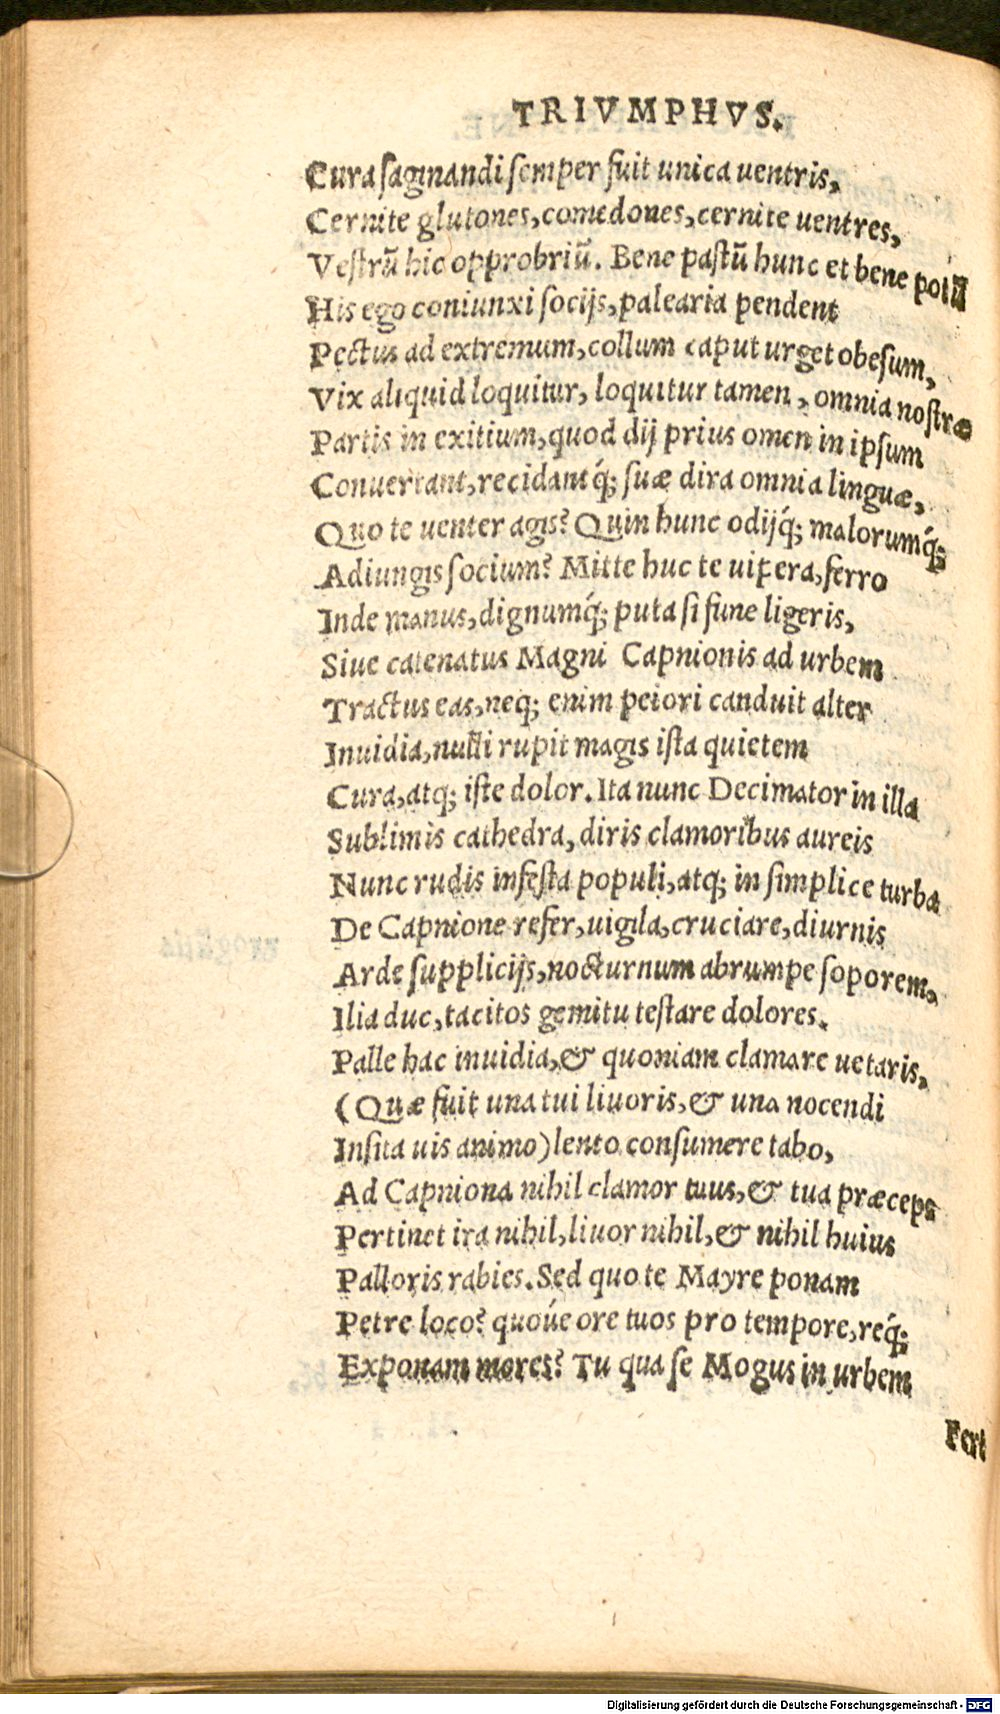 TRIVMPHVS.
Cura saginandi semper fuit unica uentris,
Cernite glutones, comedones, cernite uentres,
Vestrũ hic opprobriũ. Bene pastũ hunc et bene potũ
His ego coniunxi socijs, palearia pendent
Pectus ad extremum, collum caput urget obesum,
Vix aliquid loquitur, loquitur tamen, omnia nostræ
Partis in exitium, quod dij prius omen in ipsum
Conuertant, recidantq́; suæ dira omnia linguæ,
Quo te uenter agis? Quin hunc odijq́; malorumq́;
Adiungis socium? Mitte huc te uipera, ferro
Inde manus, dignumq́; puta si fune ligeris,
Siue catenatus Magni Capnionis ad urbem
Tractus eas, neq; enim peiori canduit alter
Inuidia, nulli rupit magis ista quietem
Cura, atq; iste dolor. Ita nunc Decimator in illa
Sublimis cathedra, diris clamoribus aureis
Nunc rudis infesta populi, atq; in simplice turba
De Capnione refer, uigila, cruciare, diurnis
Arde supplicijs, nocturnum abrumpe soporem,
Ilia duc, tacitos gemitu testare dolores.
Palle hac inuidia, & quoniam clamare uetaris,
(Quæ fuit una tui liuoris, & una nocendi
Insita uis animo) lento consumere tabo,
Ad Capniona nihil clamor tuus, & tua præceps
Pertinet ira nihil, liuor nihil, & nihil huius
Palloris rabies. Sed quo te Mayre ponam
Petre loco? quoúe ore tuos pro tempore, req́;
Exponam mores? Tu qua se Mogus in urbem
Fert
Digitalisierung gefördert durch die Deutsche Forschungsgemeinschaft - DFG